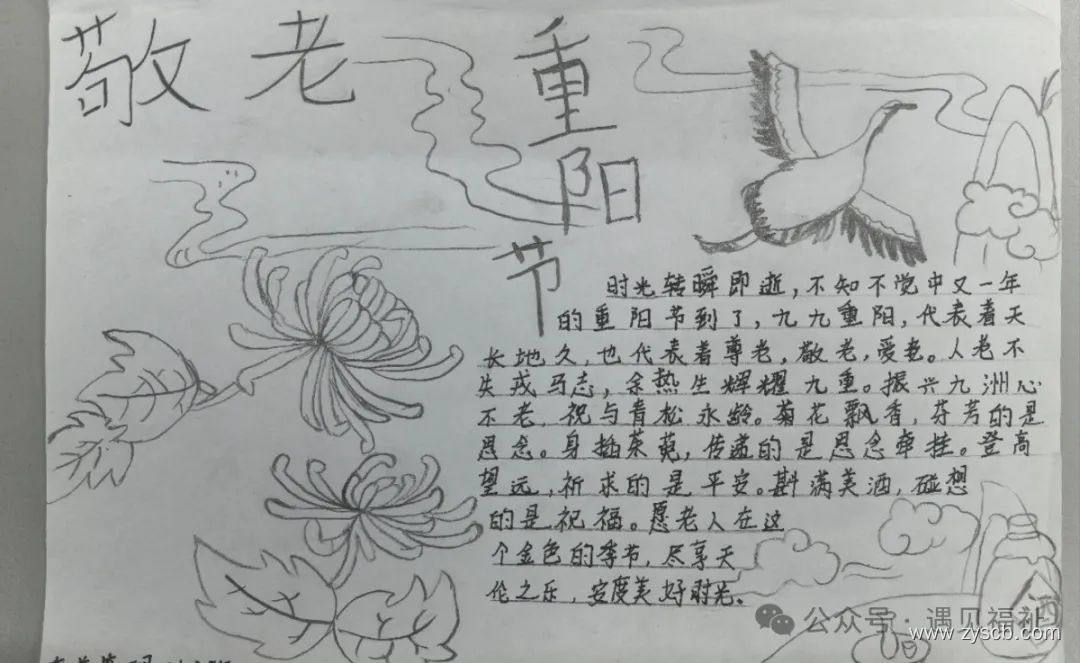 敬老
重
阳
节
时光转瞬即逝，不知不觉中又一年
的重阳节到了，九九重阳，代表着天
长地久，也代表着尊老，敬老，爱老。人老不
失戎马志，余热生辉耀九重。振兴九洲心
不老，祝与青松永龄。菊花飘香，芬芳的是
思念。身插茱萸，传递的是思念牵挂。登高
望远，祈求的是平安。斟满美酒，碰想
的是祝福。愿老人在这
个金色的季节，尽享天
伦之乐，安度美好时光。
酒
公众号·遇见福祉
www.zyscb.com